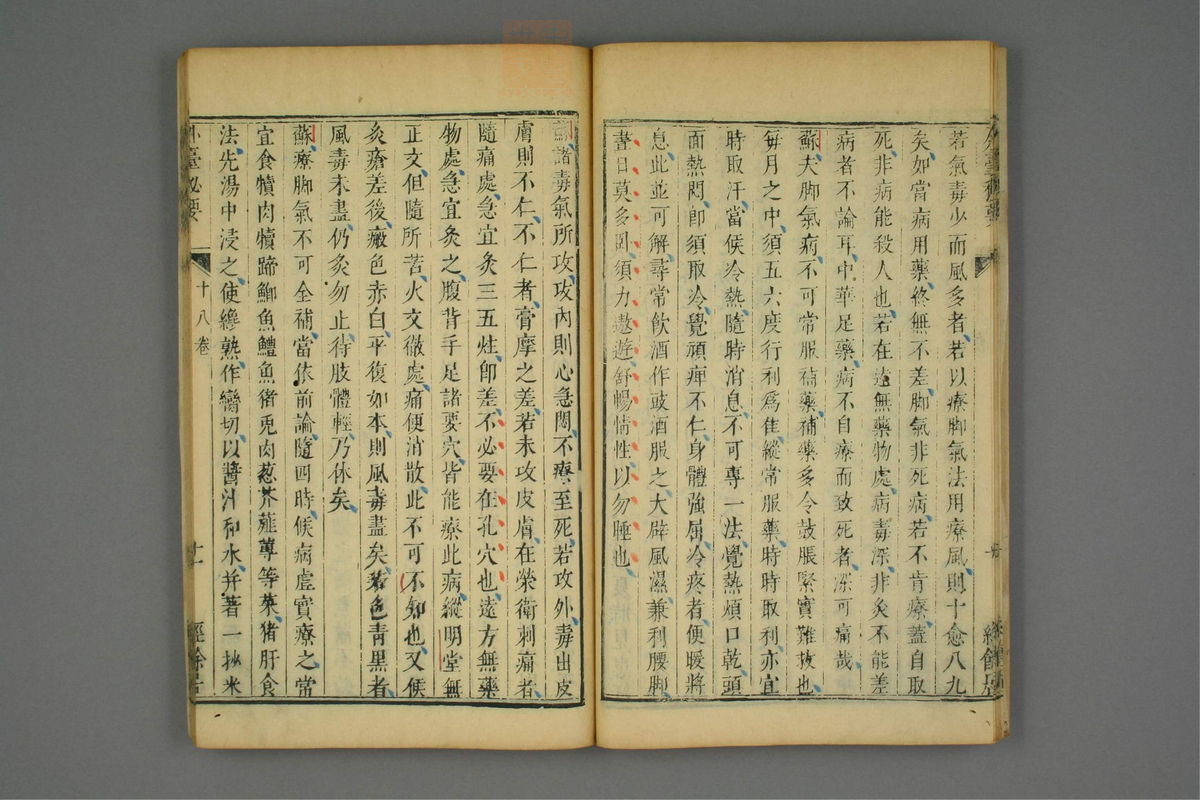 若氣毒少而風多者若以療脚氣法用療風則十愈八九
矣如當病用藥終無不差脚氣非死病若不肯療蓋自取
死非病能殺人也若在遠無藥物處病毒深非灸不能差
病者不論耳中華足藥病不自療而致死者深可痛哉
蘇夫脚氣病不可常服補藥補藥多令鼓脹緊實難救也
每月之中須五六度行利為佳縱常服藥時時取利亦宜
時取汗當候冷熱隨時消息不可專一法覺熱煩口乾頭
面熱悶即須取冷覺頑痺不仁身體強屈冷疼者便暖將
息此並可解尋常飲酒作豉酒服之大辟風濕兼利腰脚
晝日莫多因須力遨遊舒暢情性以勿睡也
蘇諸毒氣所攻攻內則心急悶不療至死若攻外毒出皮
膚則不仁不仁者膏摩之差若未攻皮膚在榮衛刺痛者
隨痛處急宜灸三五炷即差不必要在孔穴也遠方無藥
物處急宜灸之腹背手足諸要穴皆能療此病縱明堂無
正文但隨所苦火文徹處痛便消散此不可不知也又候
灸瘡差後瘢色赤白平復如本則風毒盡矣若色青黑者
風毒未盡仍灸勿止待肢體輕乃休矣
蘇療脚氣不可全補當依前論隨四時候病虛實療之當
宜食犢肉犢蹄鯽魚鱧魚猪兎肉葱芥薤蓴等菜猪肝食
法先湯中浸之使纔熟作臠切以醬汁和水并著一抄米
外臺秘要
十八卷
十一
經餘居